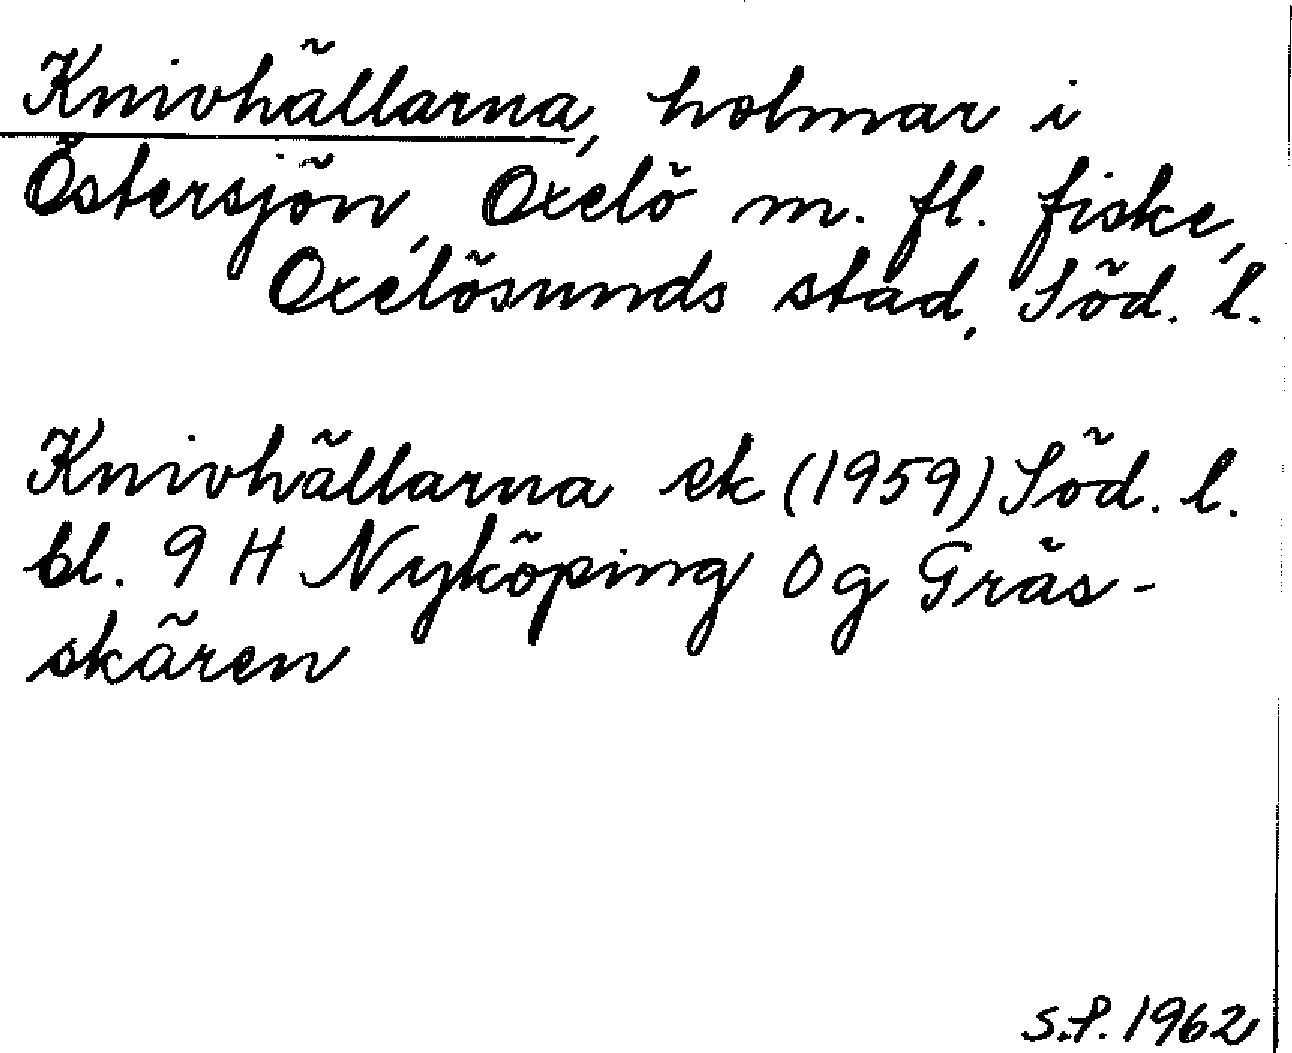 Knivhällarna, holmar i
Östersjön, Oxelö m. fl. fiske,
Oxelösunds stad, Söd. l.
Knivhällarna ek (1959) Söd. l.
bl. 9 H Nyköping 0g Gräs-
skären
S.P. 1962